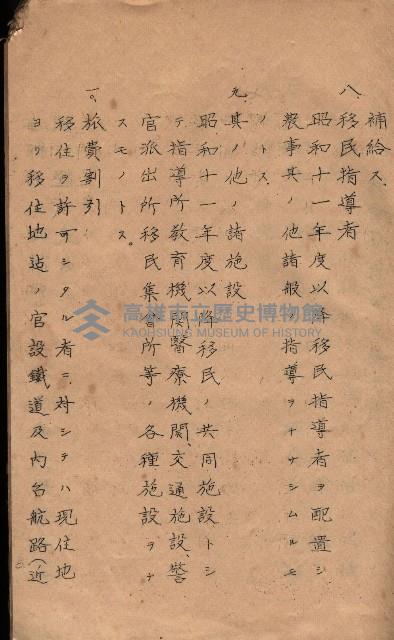 補給ス
八、移民指導者
昭和十一年度以降移民指導者ヲ配置シ
農事其ノ他諸般ノ指導ヲナサシムルモ
ノトス
九、其ノ他ノ諸施設
昭和十一年度以降移民ノ共同施設トシ
テ指導所教育機関醫療機関、交通施設、警
官派出所移民集會所等ノ各種施設ヲナ
スモノトス。
一〇、旅費割引
移住ヲ許可シタル者ニ対シテハ現住地
ヨリ移住地迠ノ官設鐵道及內台航路（近
高雄市立歷史博物館
KAOHSIUNG MUSEUM OF HISTORY